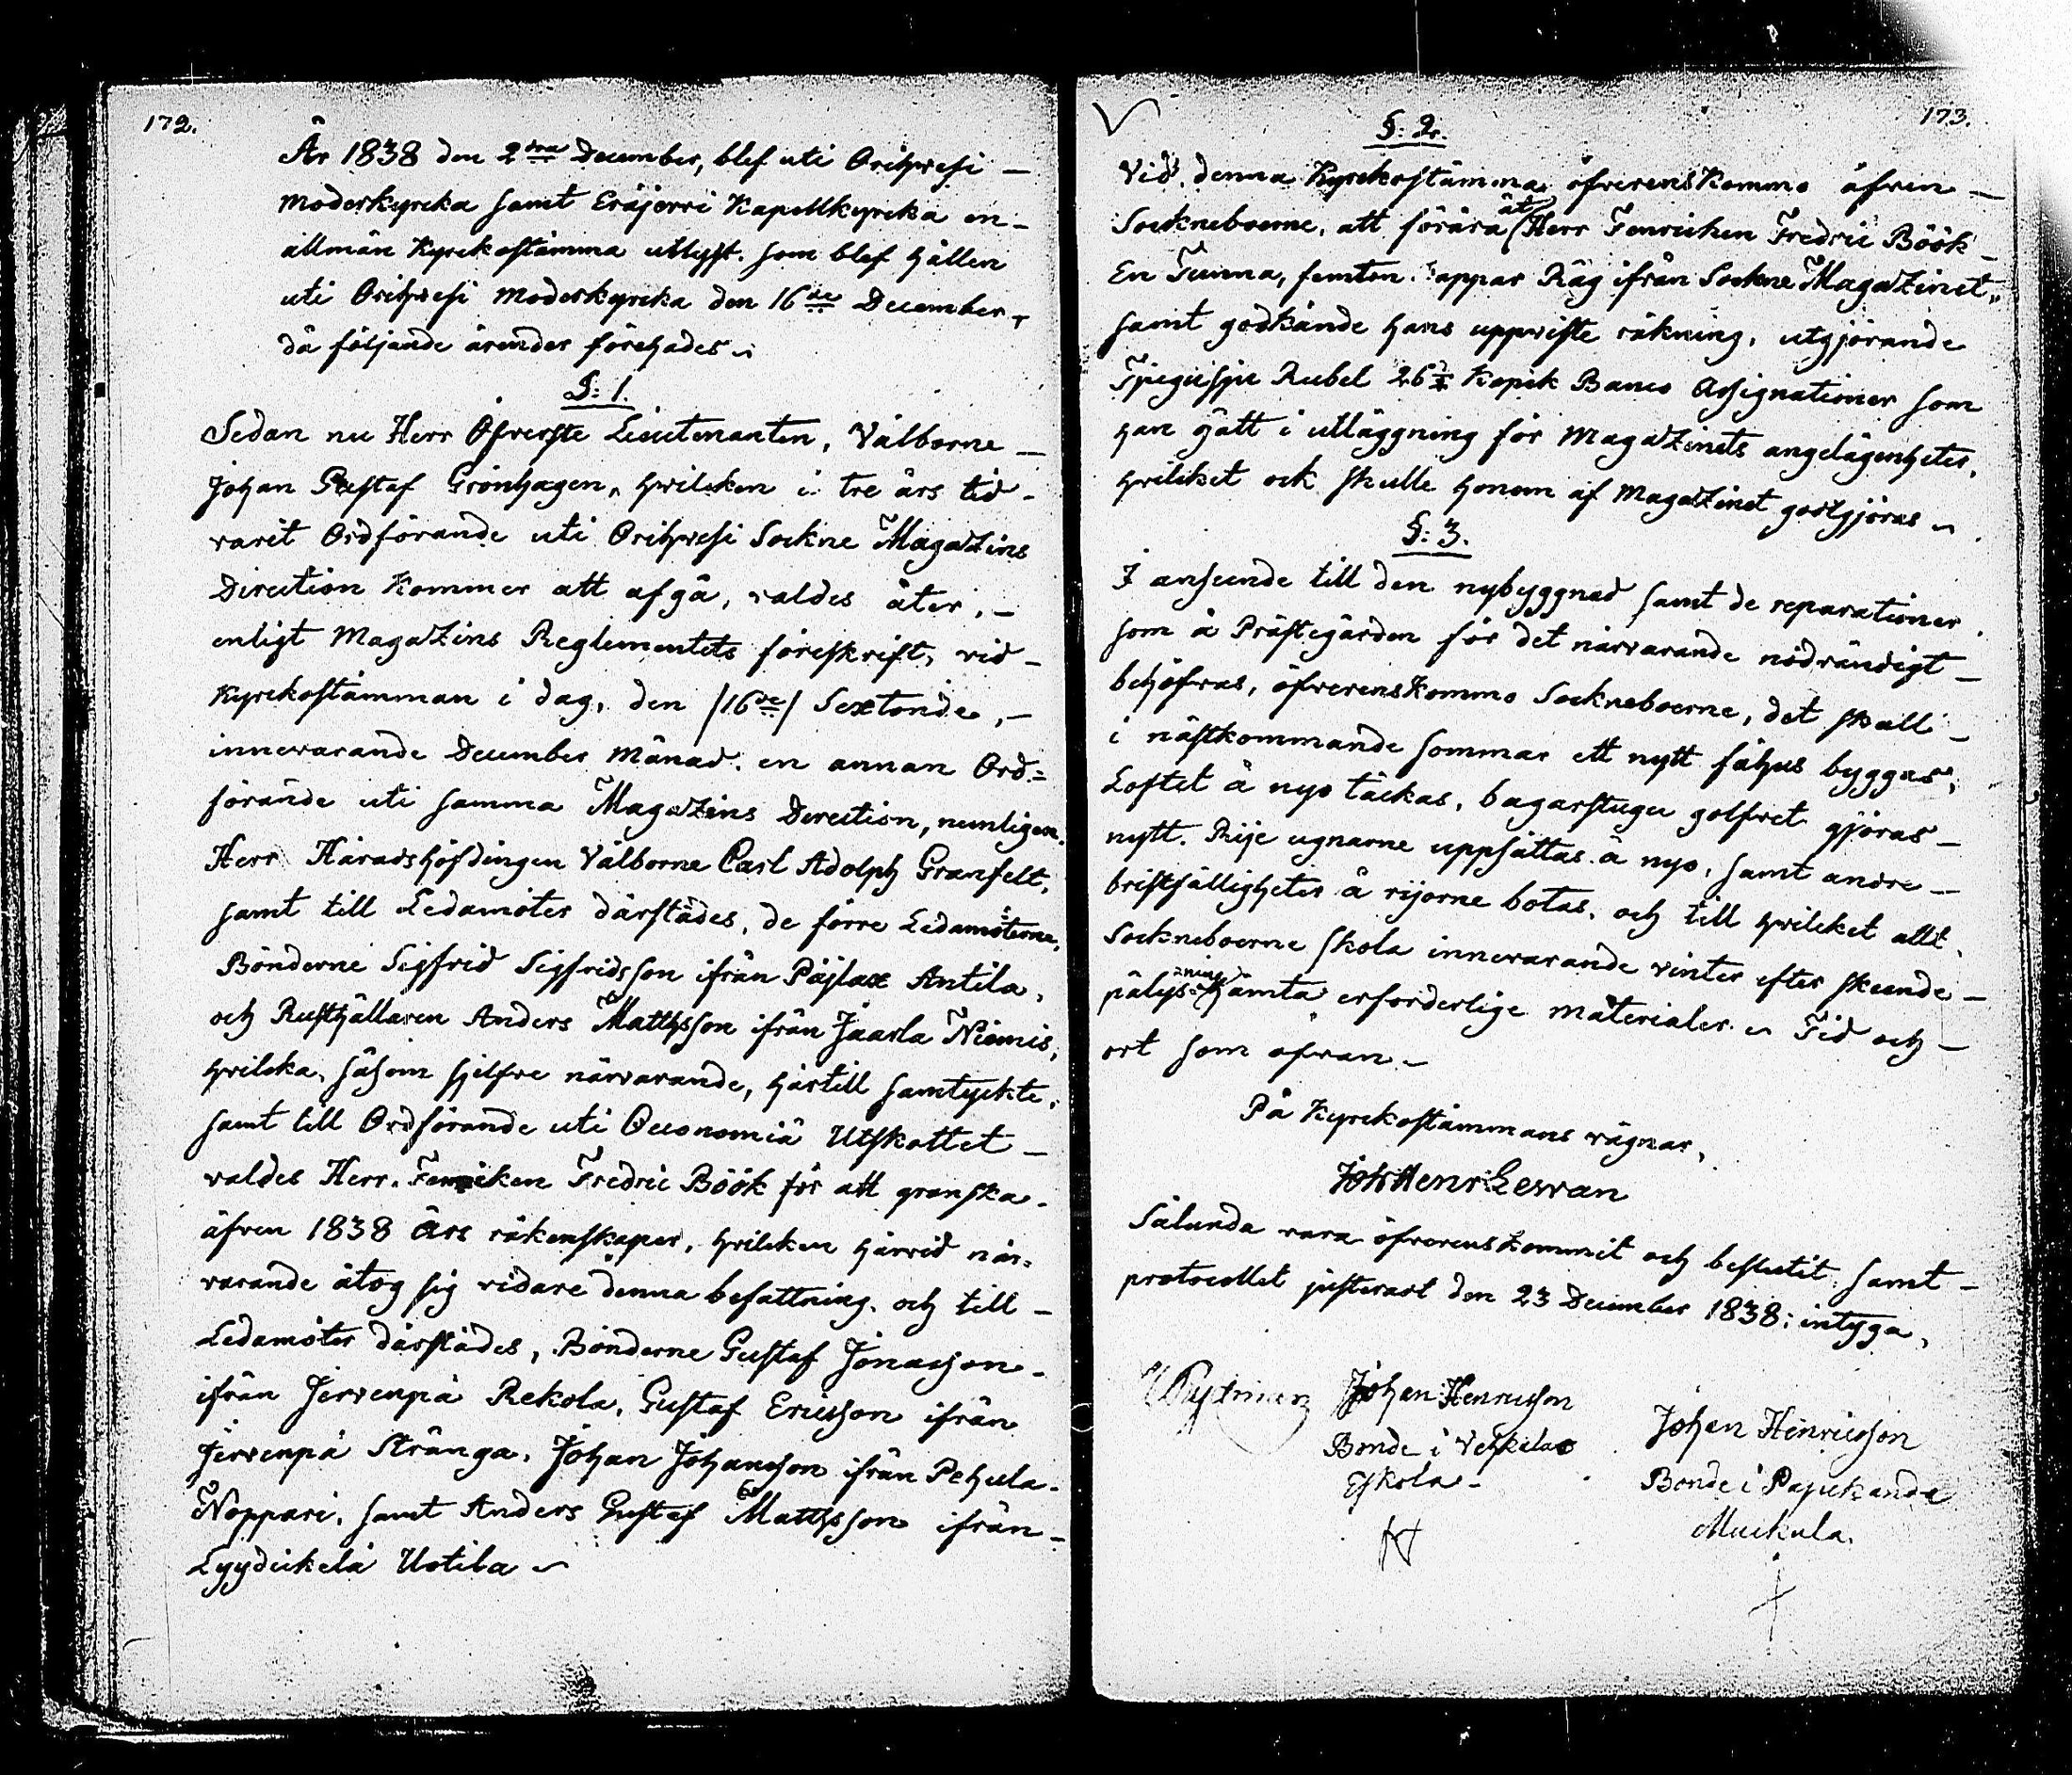 172.
År 1838 den 2dra December, blef uti Orihvesi –
moderkyrcka samt Eräjervi Kapellkyrcka en –
allmän Kyrckostämma utlyst. som blef hållen
uti Orihvesi moderkyrcka den 16de December –
då följande ärender förehades ~
§: 1.
Sedan nu Herr Öfverste Lieutenanten, Välborne –
Johan Gustaf Grönhagen, hvilcken i tre års tid –
varit Ordförande uti Orihvesi Sockne Magazins
Direction kommer att afgå, valdes åter, –
enligt Magazins Reglementets föreskrift, vid –
Kyrckostämman i dag, den /16de/ Sextonde, –
innevarande December Månad. en annan Ord=
förande uti samma Magazins Direction, nemligen.
Herr Häradshöfdingen Välborne Carl Adolph Granfelt,
samt till Ledamöter därstädes, de förre Ledamöterne,
Bönderne Sigfrid Sigfridsson ifrån Päjlax Antila,
och Rusthållaren Anders Mattsson ifrån Jaarla Niemis,
hvilcka, såsom sjelfve närvarande, härtill samtyckte,
samt till Ordförande uti Oeconomiä Utskottet –
valdes Herr. Fenriken Fredric Böök för att granska –
äfven 1838 Års räkenskaper, hvilcken härvid när=
varande åtog sig vidare denna befattning. och till –
Ledamöter därstädes, Bönderne Gustaf Jonasson –
ifrån Jervenpä Rekola, Gustaf Ericsson ifrån
Jervenpä Stränga, Johan Johansson ifrån Pehula –
Noppari, samt Anders Gustaf Mattsson ifrån –
Lyydickelä Uotila ~
173.
§: 2.
Vid denna Kyrckostämma öfverenskommo äfven –
Sockneboerne, att förära åt Herr Fenricken Fredric Böök –
En Tunna, femton kappar Råg ifrån Sockne Magazinet,
samt godkände hans uppviste räkning, utgjörande
Tjugusju Rubel 26 Kopek Banco Assignationer som
han gått i utläggning för Magazinets angelägenheter,
hvilcket ock skulle honom af Magazinet godtgjöras ~
§: 3.
I anseende till den nybyggnad samt de reparationer
som å Prästegården för det närvarande nödvändigt –
behöfvas, öfverenskommo Sockneboerne, det skall –
i nästkommande sommar ett nytt fähus byggas,
Loftet å nyo täckas, bagarstugu golfvet gjöras –
nytt. Rije ugnarne uppsättas å nyo, samt andre –
bristfälligheter å rijorne botas, och till hvilcket allt
Sockneboerne skola innevarande vinter efter skeende –
pålysning hämta erforderlige materialer. ~ Tid och –
ort som ofvan –
På Kyrckostämmans vägnar,
Joh Henr Lewan
Sålunda vara öfverenskommit och beslutit samt –
protocollet justerat den 23 December 1838; intyga,
Johan Henricsson
Bonde i Vehkalax
Eskola –
Johan Henricsson
Bonde i Pajukanda
Muikula.